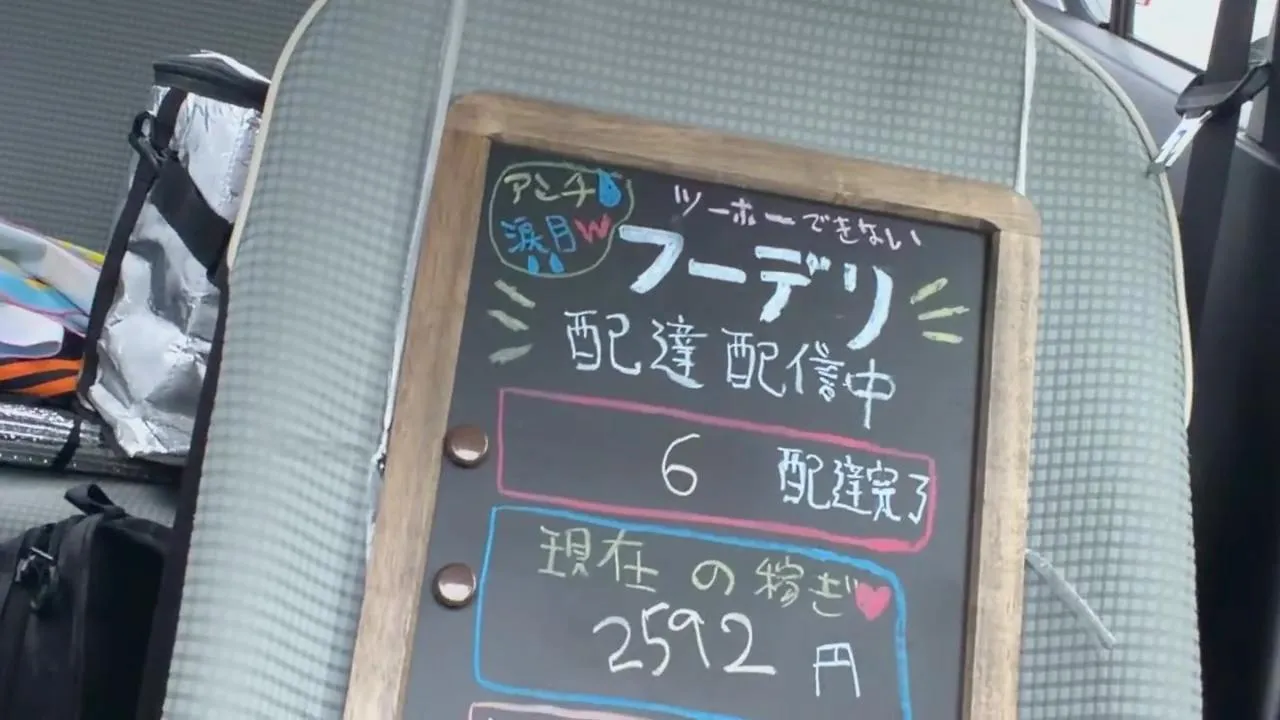 アンチ
涙月W
ツーホーできない
フーデリ
配達配信中
6 配達完了
現在の稼ぎ
2592円